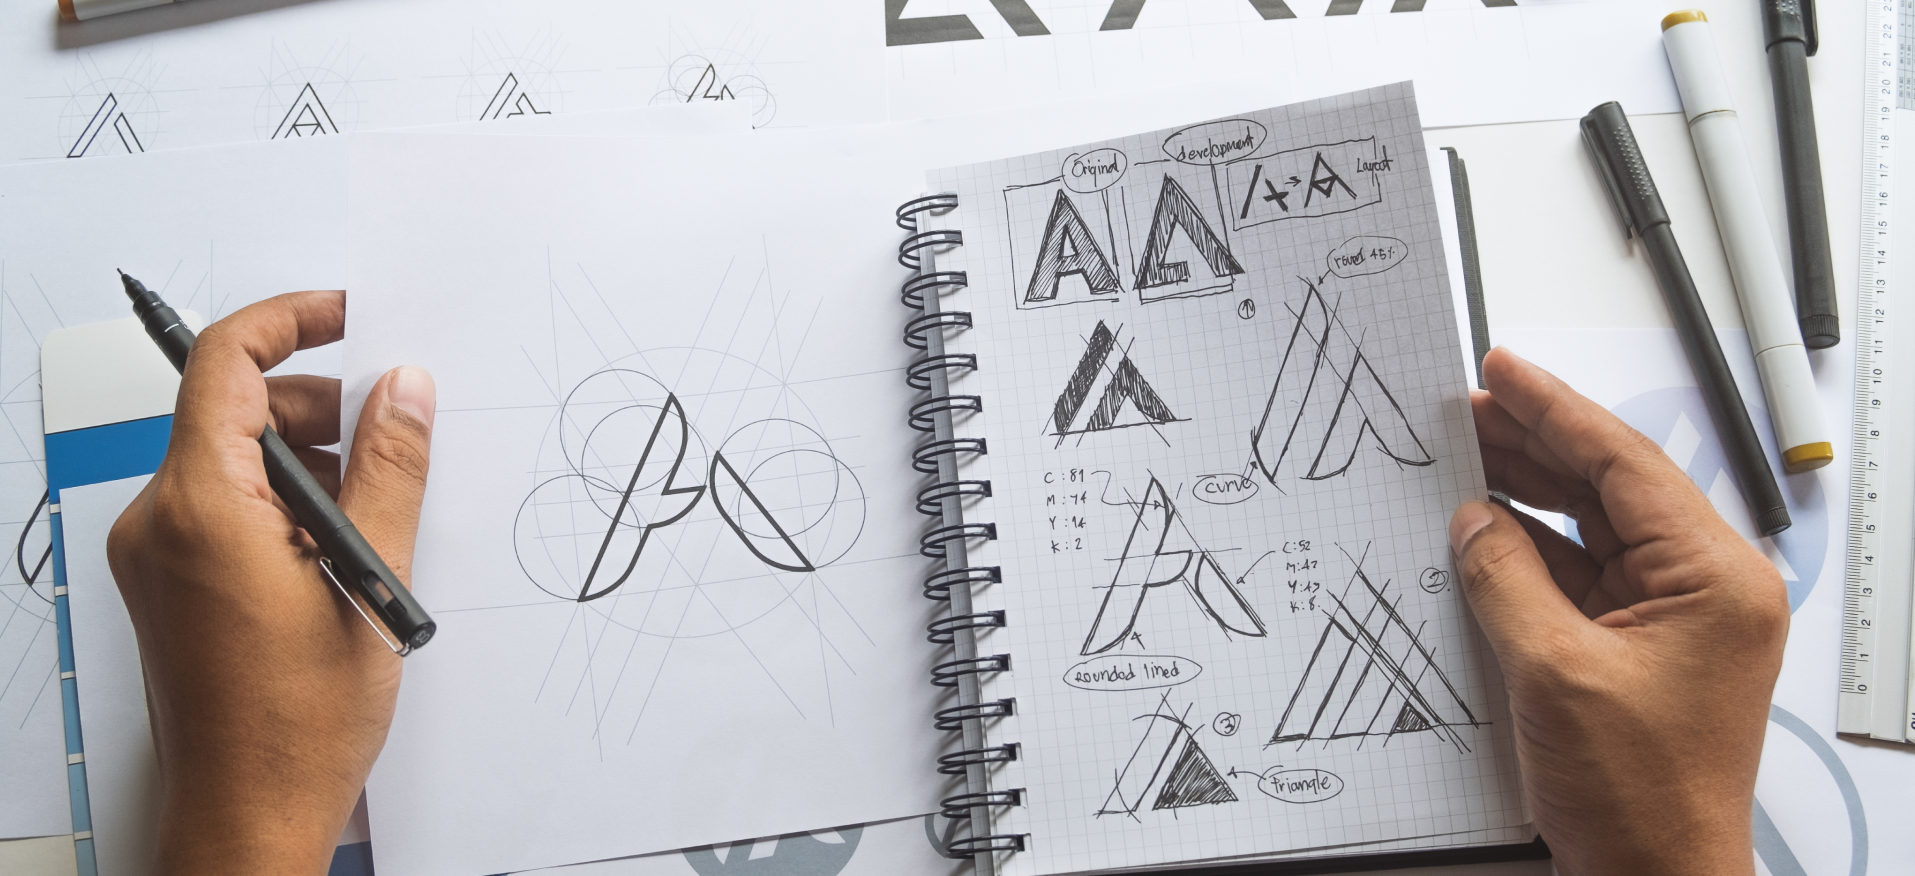 Original
development
A
A
Layout
round 45%
1
C:81
M:74
Y:14
K:2
curve
C:52
M:42
Y:43
K:8
2
rounded lined
3
Triangle
0 1 2 3 4 5 6 7 8 9 10 11 12 13 14 15 16 17 18 19 20 21 22